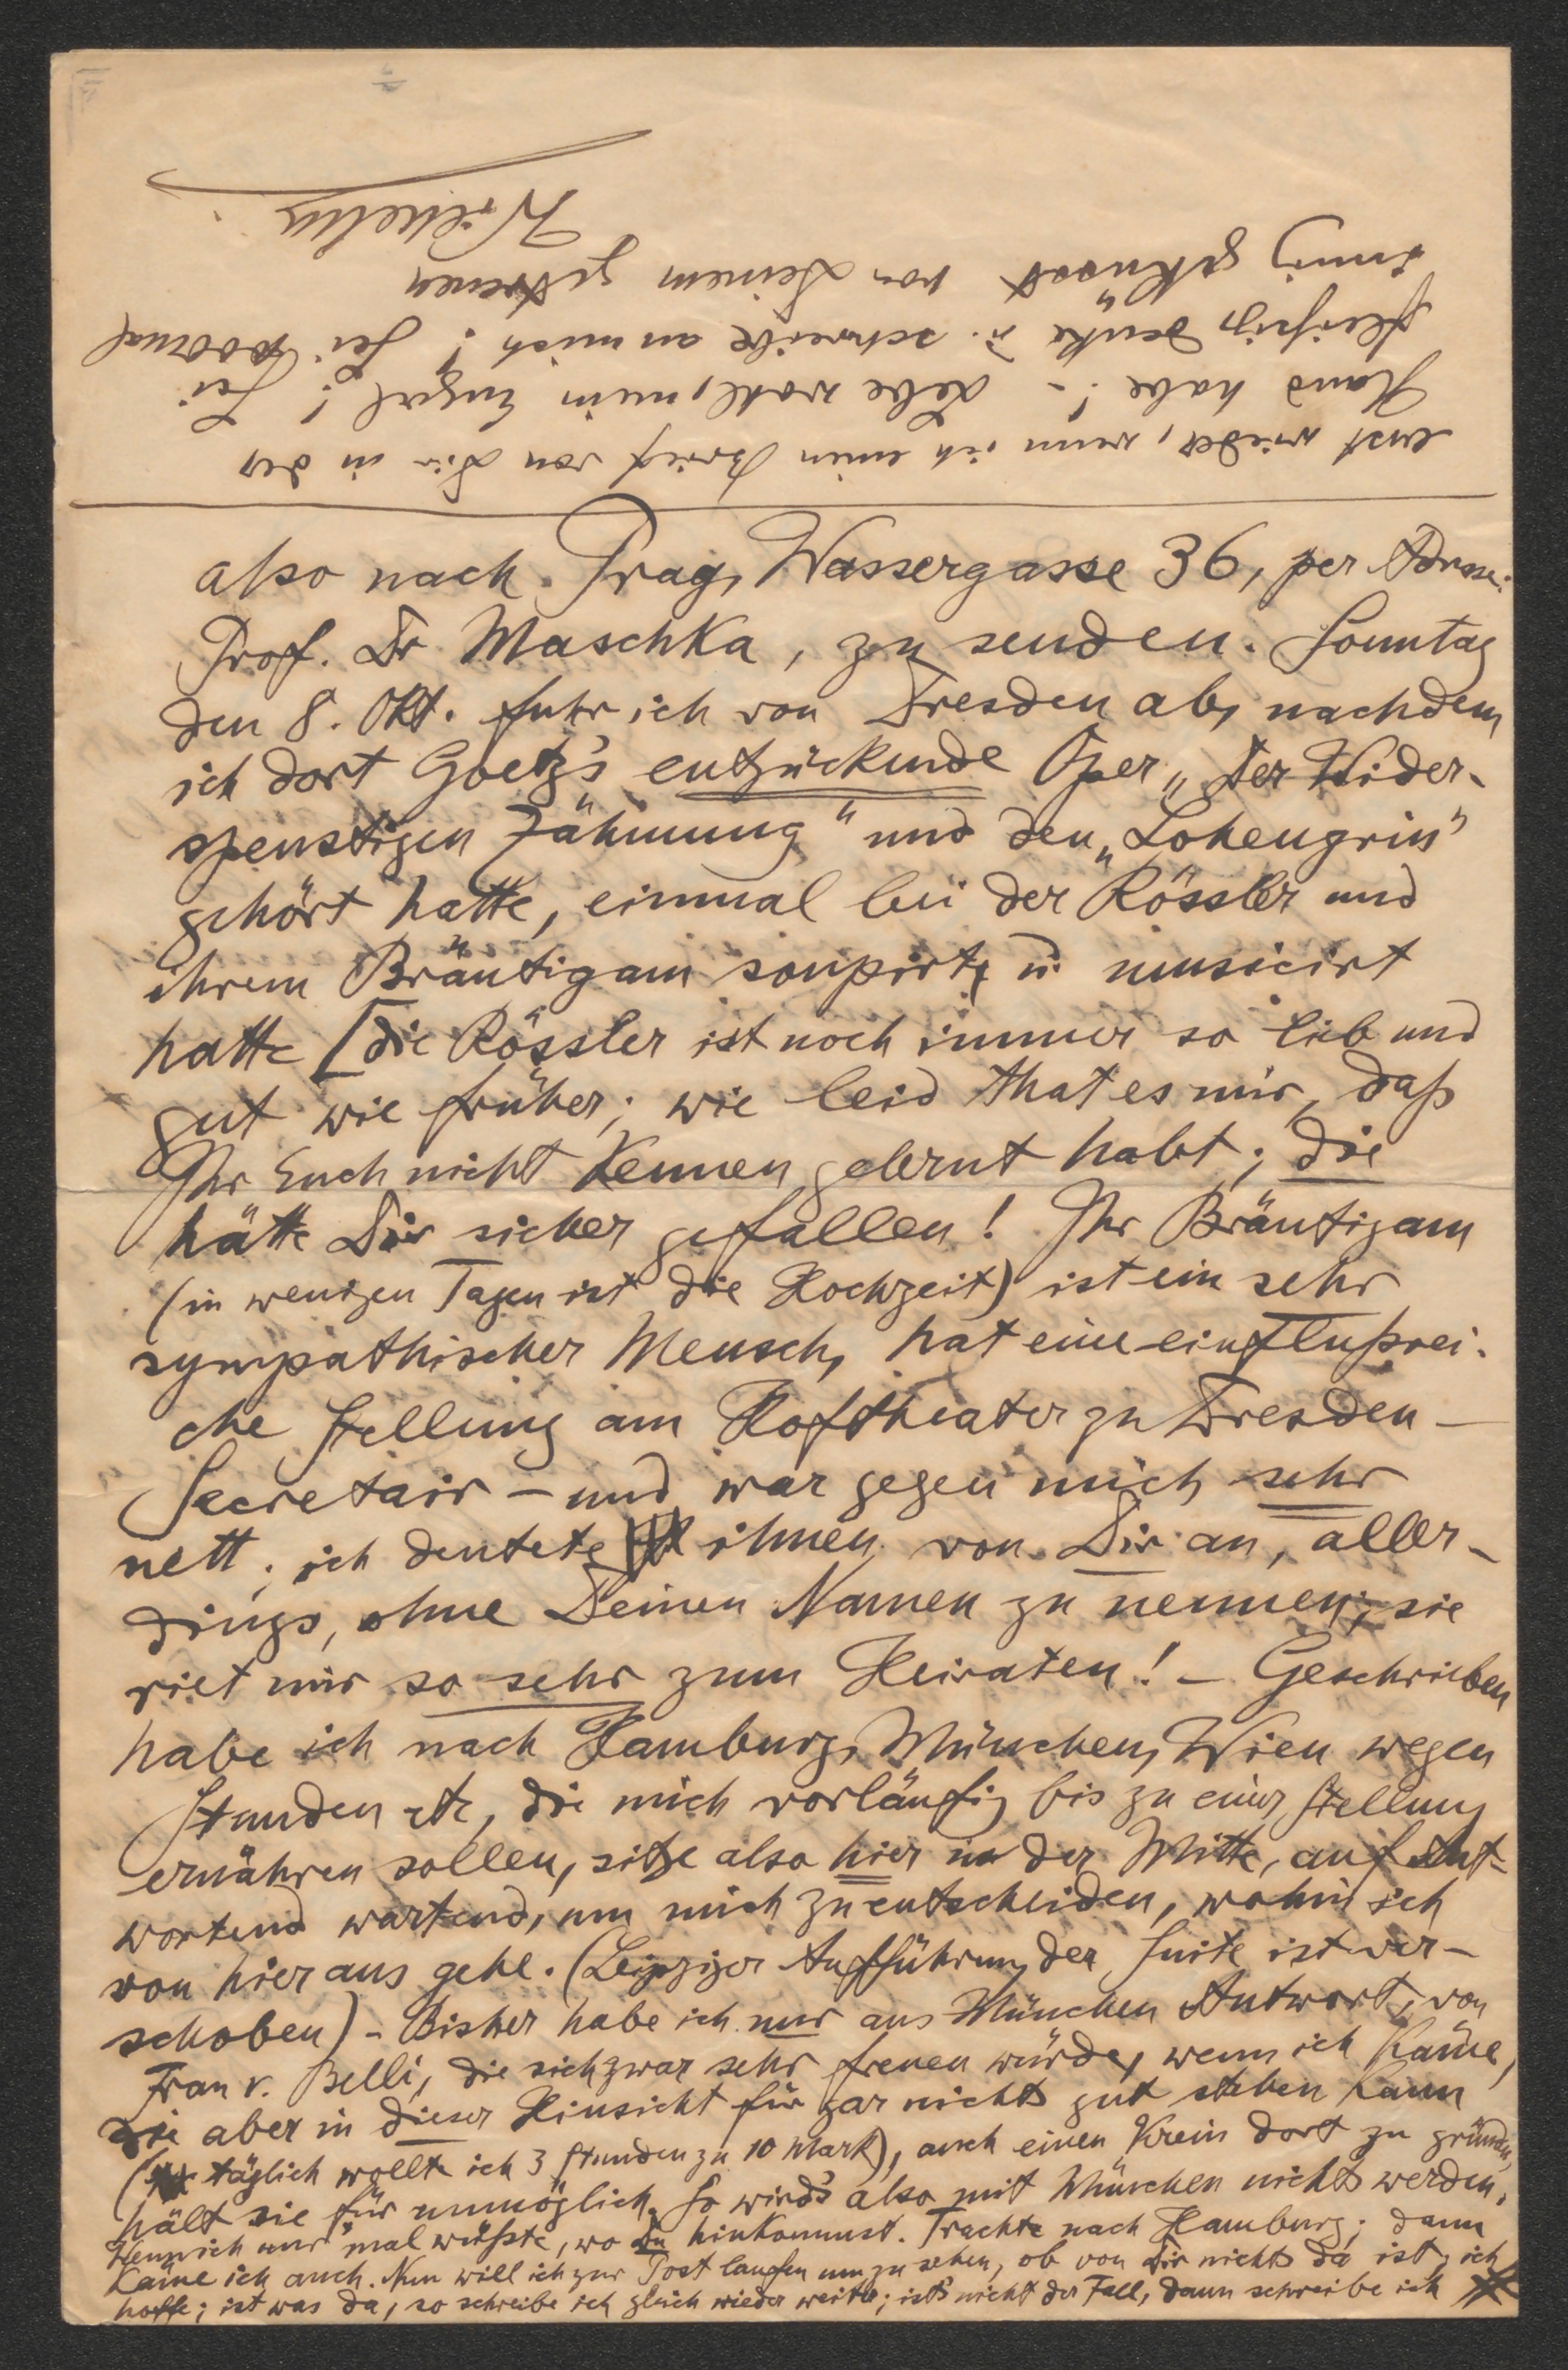 also nach Prag, Wassergasse 36, per Adresse:
Prof. Dr Maschka, zu senden. Sonntag
den 8. Okt. fuhr ich von Dresden ab, nachdem
ich dort Goetz's entzückende Oper „Der Wider-
spenstigen Zähmung" und den „Lohengrin"
gehört hatte, einmal bei der Rössler und
ihrem Bräutigam soupirt u. musicirt
hatte [die Rössler ist noch immer so lieb und
gut wie früher; wie leid that es mir, daß
Ihr Euch nicht kennen gelernt habt; die
hätte Dir sicher gefallen! Ihr Bräutigam
(in wenigen Tagen ist die Hochzeit) ist ein sehr
sympathischer Mensch, hat eine einflußrei-
che Stellung am Hoftheater zu Dresden –
Secretair – und war gegen mich sehr
nett; ich deutete ihnen von Dir an, aller-
dings, ohne Deinen Namen zu nennen; sie
riet mir so sehr zum Heiraten! – Geschrieben
habe ich nach Hamburg, München, Wien wegen
Stunden etc, die mich vorläufig bis zu einer Stellung
ernähren sollen, sitze also hier in der Mitte, auf Ant-
wortend wartend, um mich zu entscheiden, wohin ich
von hier aus gehe. (Leipziger Aufführung der Suite ist ver-
schoben) – Bisher habe ich nur aus München Antwort, von
Frau v. Belli, die sich zwar sehr freuen würde, wenn ich käme,
die aber in dieser Hinsicht für gar nichts gut stehen kann
(täglich wollte ich 3 Stunden zu 10 Mark), auch einen Kreis dort zu gründen,
hält sie für unmöglich. So wird's also mit München nichts werden.
Wenn ich nur 'mal wüßte, wo Du hinkommst. Trachte nach Hamburg; dann
käme ich auch. Nun will ich zur Post laufen um zu sehen, ob von Dir nichts da ist, ich
hoffe; ist was da, so schreibe ich gleich wieder weiter; ist's nicht der Fall, dann schreibe ich
erst wieder, wenn ich einen Brief von Dir in der
Hand habe! – Lebe wohl, mein Engerl! Sei
fleißig, denke u. schreibe an mich! Sei
innig geküsst von Deinem getreuen
Wilhelm